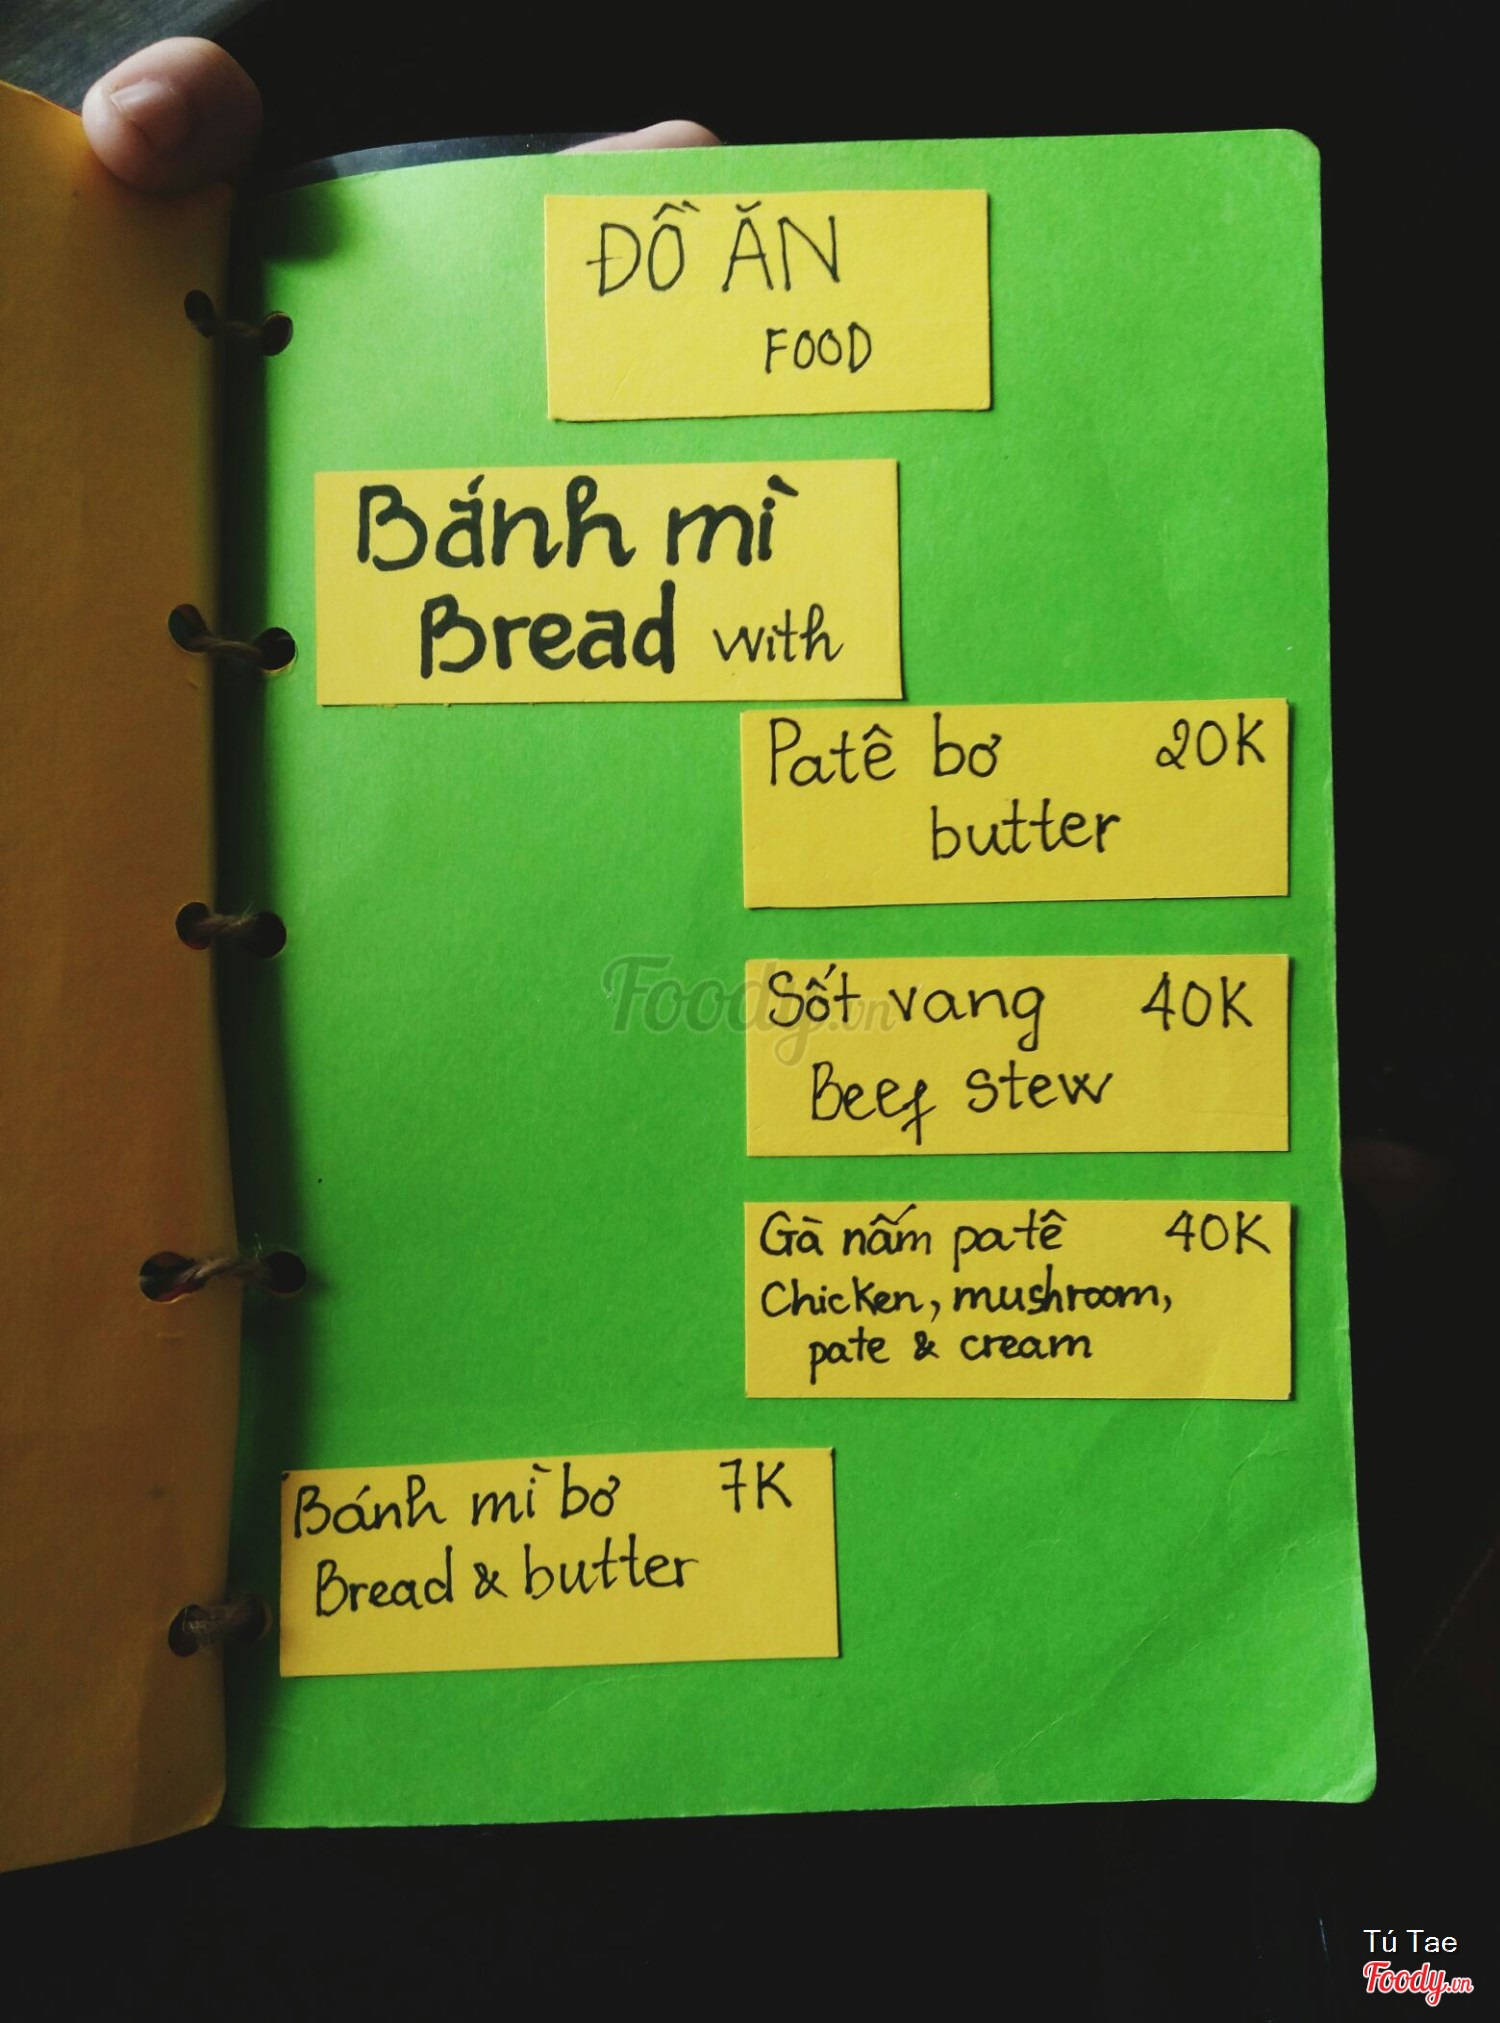 ĐỒ ĂN
FOOD
Bánh mì
Bread with
Patê bơ 20K
butter
Sốt vang 40K
Beef stew
Gà nấm patê 40K
Chicken, mushroom,
pate & cream
Bánh mì bơ 7K
Bread & butter
Foody.vn
Tú Tae
Foody.vn